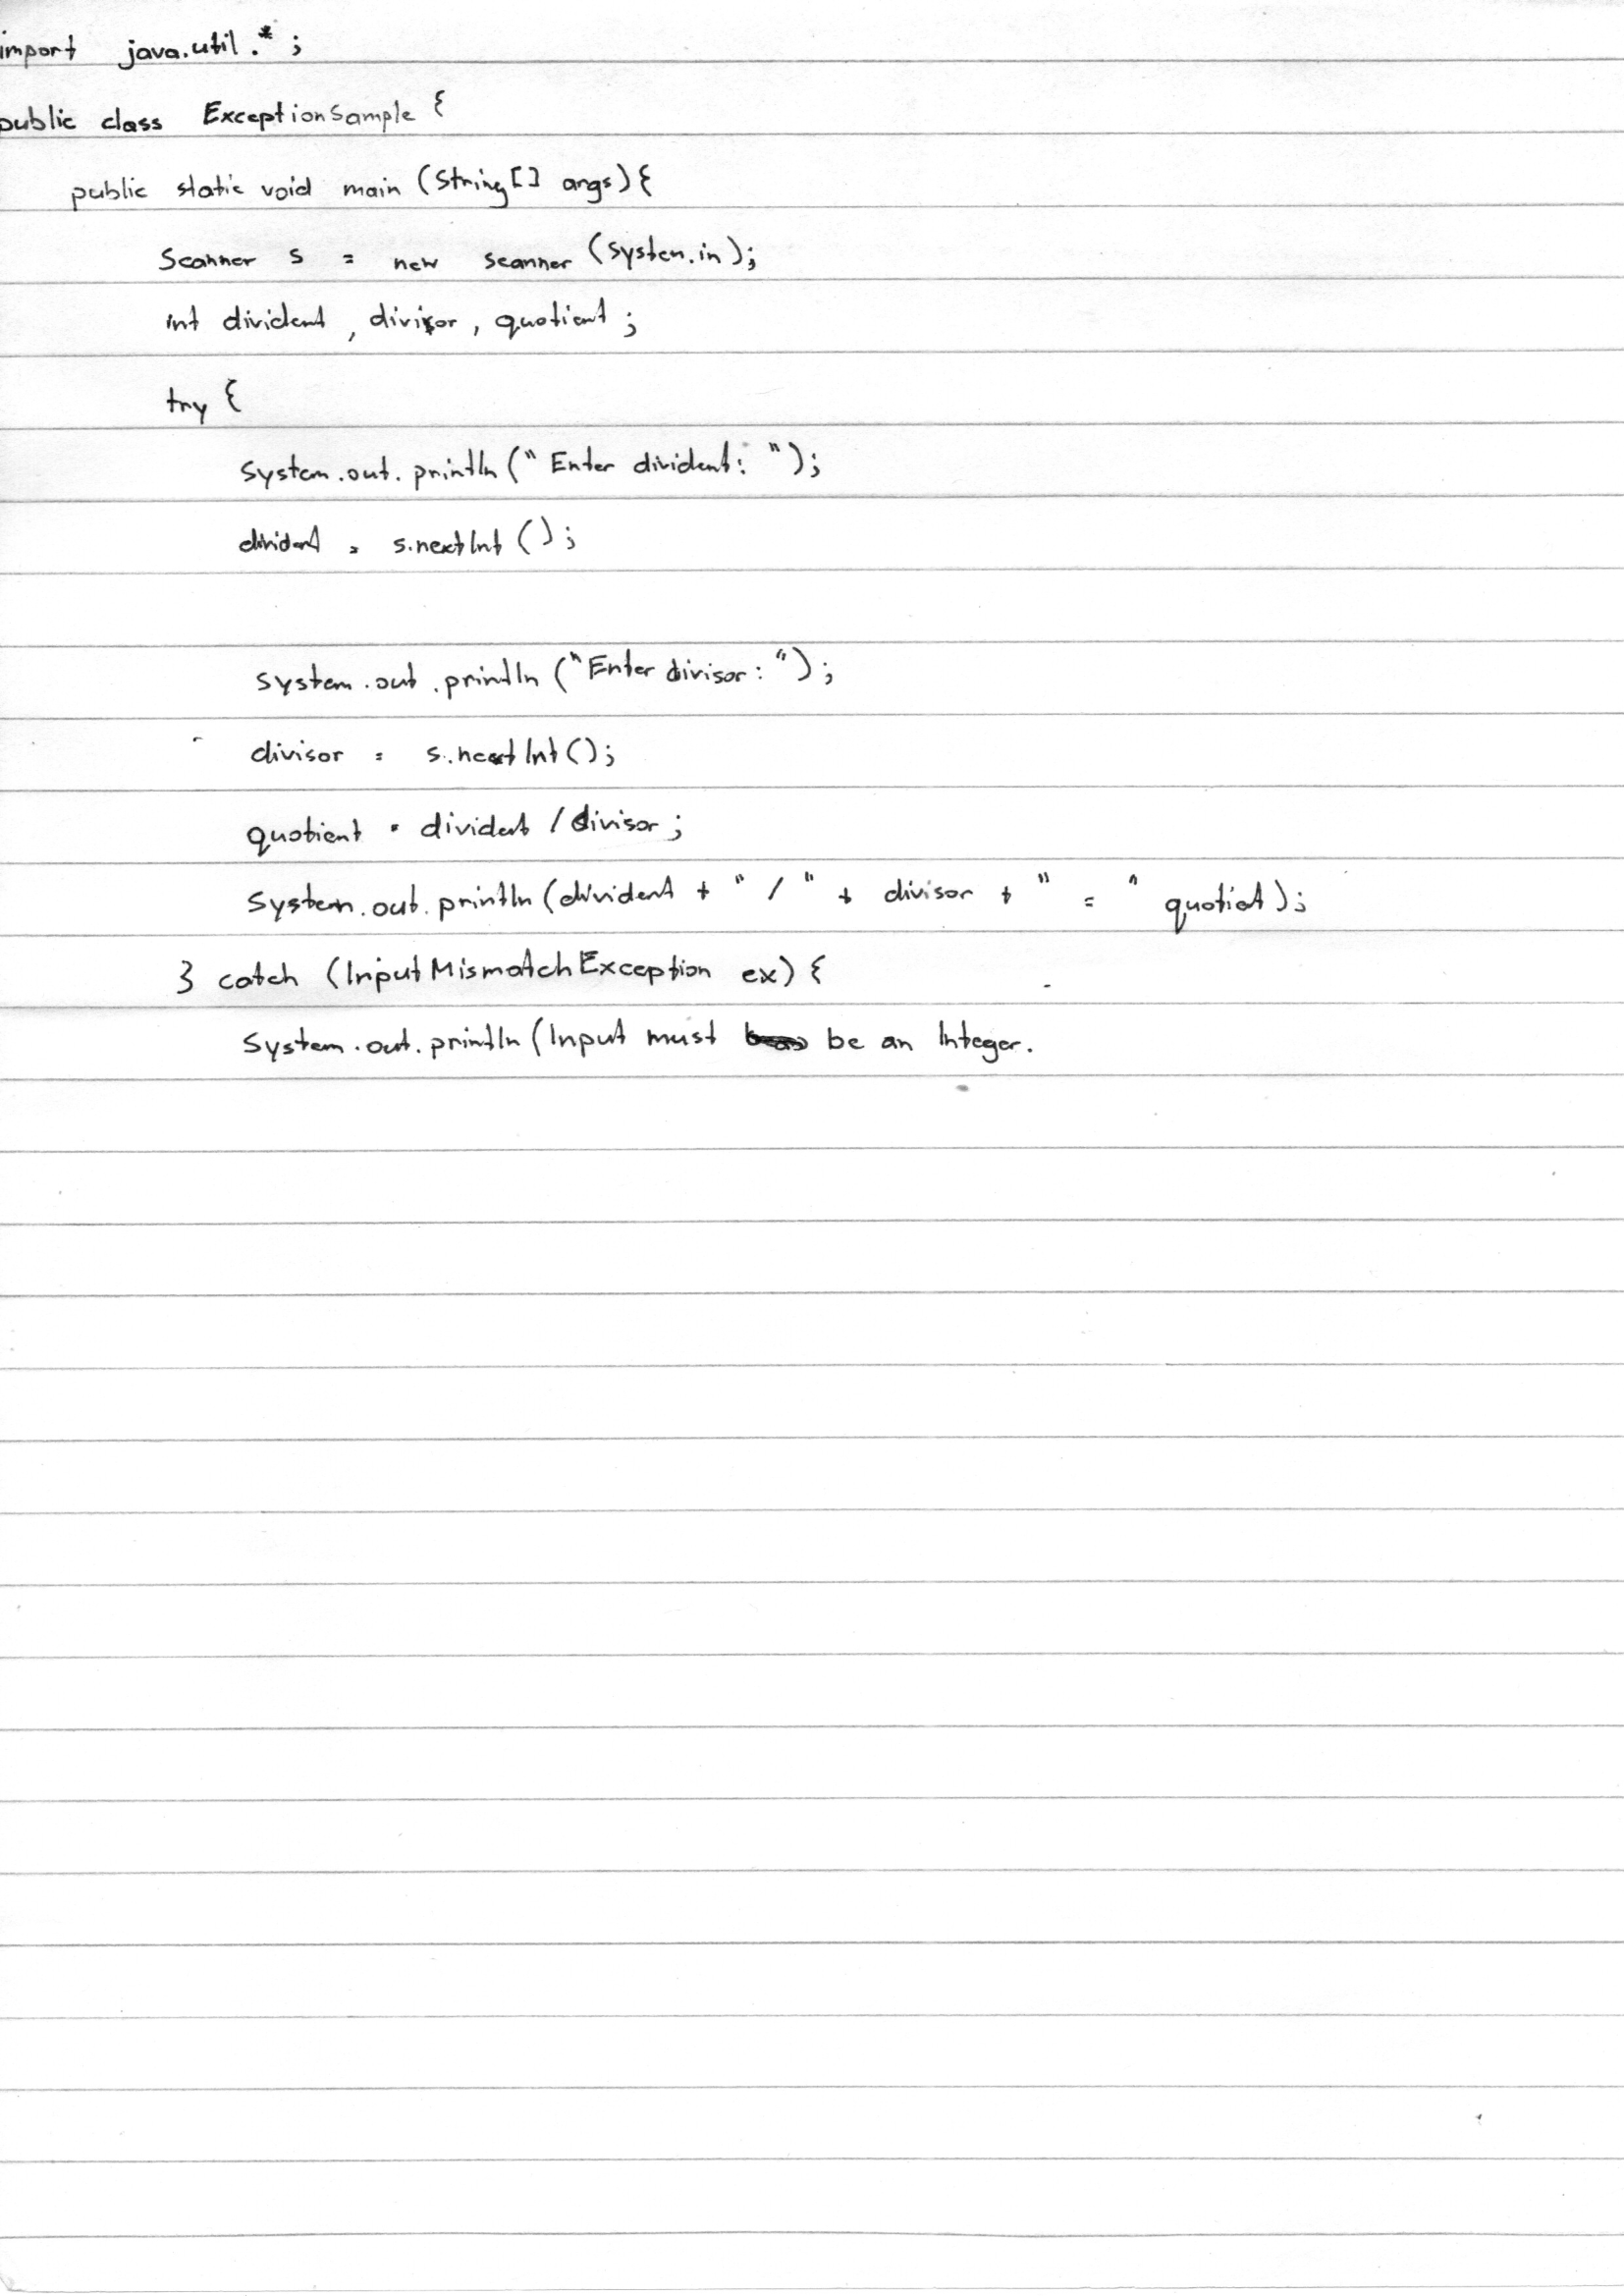 import java.util.*;
public class ExceptionSample {
public static void main (String[] args){
Scanner s = new scanner (system.in);
int divident, divisor, quotient;
try {
System.out.println(" Enter divident: ");
divident = s.nextInt();
System.out.println ("Enter divisor: ");
divisor = s.nextInt();
quotient = divident / divisor;
System.out.println(divident + " / " + divisor + " = " quotient);
} catch (InputMismatchException ex) {
System.out.println(Input must be an Integer.